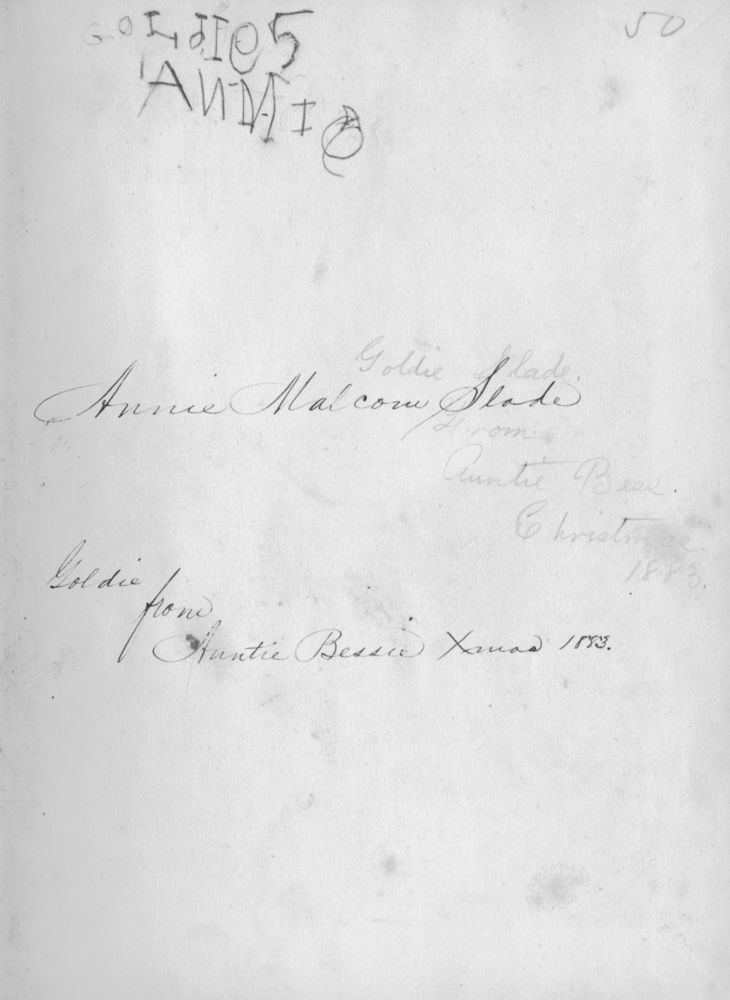 GOLDIE5
50
ANNIE
Goldie Slade.
Annie Malcom Slade
From
Auntie Bess.
Christmas
1883.
Goldie
from
Auntie Bessie Xmas 1883.